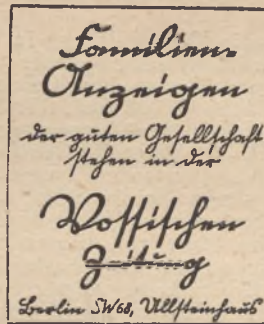 Familien-
Anzeigen
der guten Gesellschaft
stehen in der
Vossischen
Zeitung
Berlin SW68, Ullsteinhaus